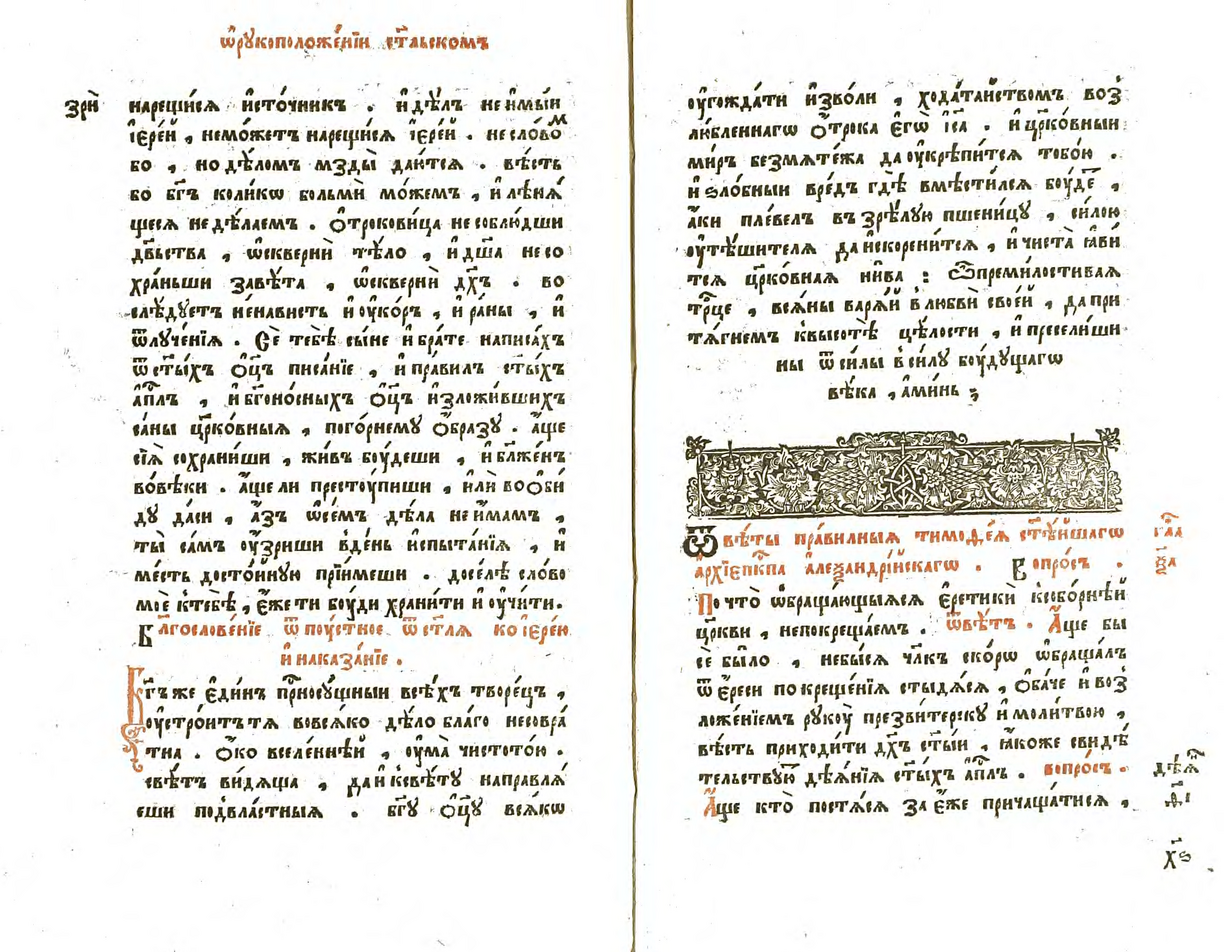 ѡ҆рукоположе́нїи ст҃льскомъ
зрѝ
нарещи́сѧ и҆сто́чникъ . и҆дѣ́лъ неи҆мы́и
і҆ере́й , немо́жетъ нарещи́сѧ і҆ере́й . несло́вомъ
бо , нодѣ́ломъ мзды̀ даи́тсѧ . вѣ́сть
бо бг҃ъ коли́кѡ больмѝ мо́жемъ , и҆лѣнѧ́
щесѧ недѣ́лаемъ . ѻ҆трокови́ца несоблю́дши
дв҃ьства , ѡ҆скверни́ тѣ́ло , и҆дш҃а несо
хра́ньши завѣ́та , ѡ҆скверни́ дх҃ъ . во
слѣ́дуетъ не́нависть и҆оуко́ръ , и҆ра́ны , и҆
ѿлуче́нїѧ . Се́ тебѣ̀ сы́не и҆бра́те написа́хъ
ѿст҃ы́хъ ѻ҆ц҃ъ писа́нїе , и҆пра́вилъ ст҃ы́хъ
а҆пл҃ъ , и҆бг҃оно́сныхъ ѻ҆ц҃ъ и҆зложи́вшихъ
са́ны цр҃ко́вныѧ , пого́рнему ѻ҆́бразу . а҆́ще
сїѧ̀ сохрани́ши , жи́въ боу́деши , и҆бл҃же́нъ
во́вѣки . а҆́щели престоу́пиши , и҆лѝ воѻби́
ду да́си , а҆́зъ ѡ҆се́мъ дѣ́ла неи҆́мамъ ,
ты̀ са́мъ оу҆́зриши вде́нь и҆спыта́нїѧ , и҆
ме́сть досто́йную прїи́меши . досе́лѣ сло́во
моѐ ктебѣ̀ , є҆́жети боу́ди храни́ти и҆оучи́ти.
Благослове́нїе ѿпоу́стное ѿст҃лѧ ко і҆ере́ю
и҆наказа́нїе .
Бг҃ъже є҆ди́нъ прⷭ҇носу́щныи всѣ́хъ творе́цъ ,
оу҆стро́итътѧ вовсѧ́ко дѣ́ло бла́го несовра́
тна . ѻ҆́ко вселе́ннѣй , оу҆ма̀ чистото́ю .
свѣ́тъ ви́дѧща , дай́ксвѣ́ту направлѧ́
еши подвла́стныѧ . бг҃у ѻ҆ц҃у всѧ́кѡ
оу҆гожда́ти и҆зво́ли , хода́тайствомъ воз
лю́бленнагѡ ѻ҆́трока є҆гѡ̀ і҆са . и҆цр҃ко́вныи
ми́ръ безмѧте́жа даоукрѣпи́тсѧ тобо́ю .
и҆ѕло́бныи вре́дъ гдѣ̀ вмѣсти́лсѧ боу́де ,
а҆́ки пле́велъ взрѣ́лую пшени́цу , си́лою
оу҆тѣ́шителѧ даи҆скорени́тсѧ , и҆чиста̀ ꙗ҆ви́
тсѧ цр҃ко́внаѧ ни́ва : Ѽпреми́лостиваѧ
трⷪ҇це , всѧ́ны варѧ́й влюбвѝ свое́й , дапри
тѧ́гнемъ квысотѣ̀ цѣ́лости , и҆пресели́ши
ны ѿси́лы вси́лу боу́дущагѡ
вѣ́ка , а҆ми́нь ;
Ѿвѣ́ты пра́вилныѧ тимоѳе́ѧ ст҃ѣ́йшагѡ
а҆рхїепⷭ҇кпа алеѯандрі́йскагѡ . Вопро́съ .
гл҃а
ѯ҃а
Почто̀ ѡ҆браща́ющыѧсѧ є҆ретикѝ ксобо́рнѣй
цр҃кви , непокреща́емъ . ѿвѣ́тъ . А҆́ще бы
сѐ бы́ло , небы́сѧ чл҃къ ско́рѡ ѡ҆браща́лъ
ѿе҆́реси покреще́нїѧ стыдѧ́сѧ , ѻ҆ба́че и҆воз
ложе́нїемъ рукоу̀ презви́терску и҆моли́твою ,
вѣ́сть приходи́ти дх҃ъ ст҃ы́и , ꙗ҆́коже свидѣ́
тельствую̀ дѣѧ́нїѧ ст҃ы́хъ а҆пл҃ъ . вопро́съ .
дѣѧ҇
А҆́ще кто̀ постѧ́сѧ заѐже причаща́тисѧ ,
х҃ѕ